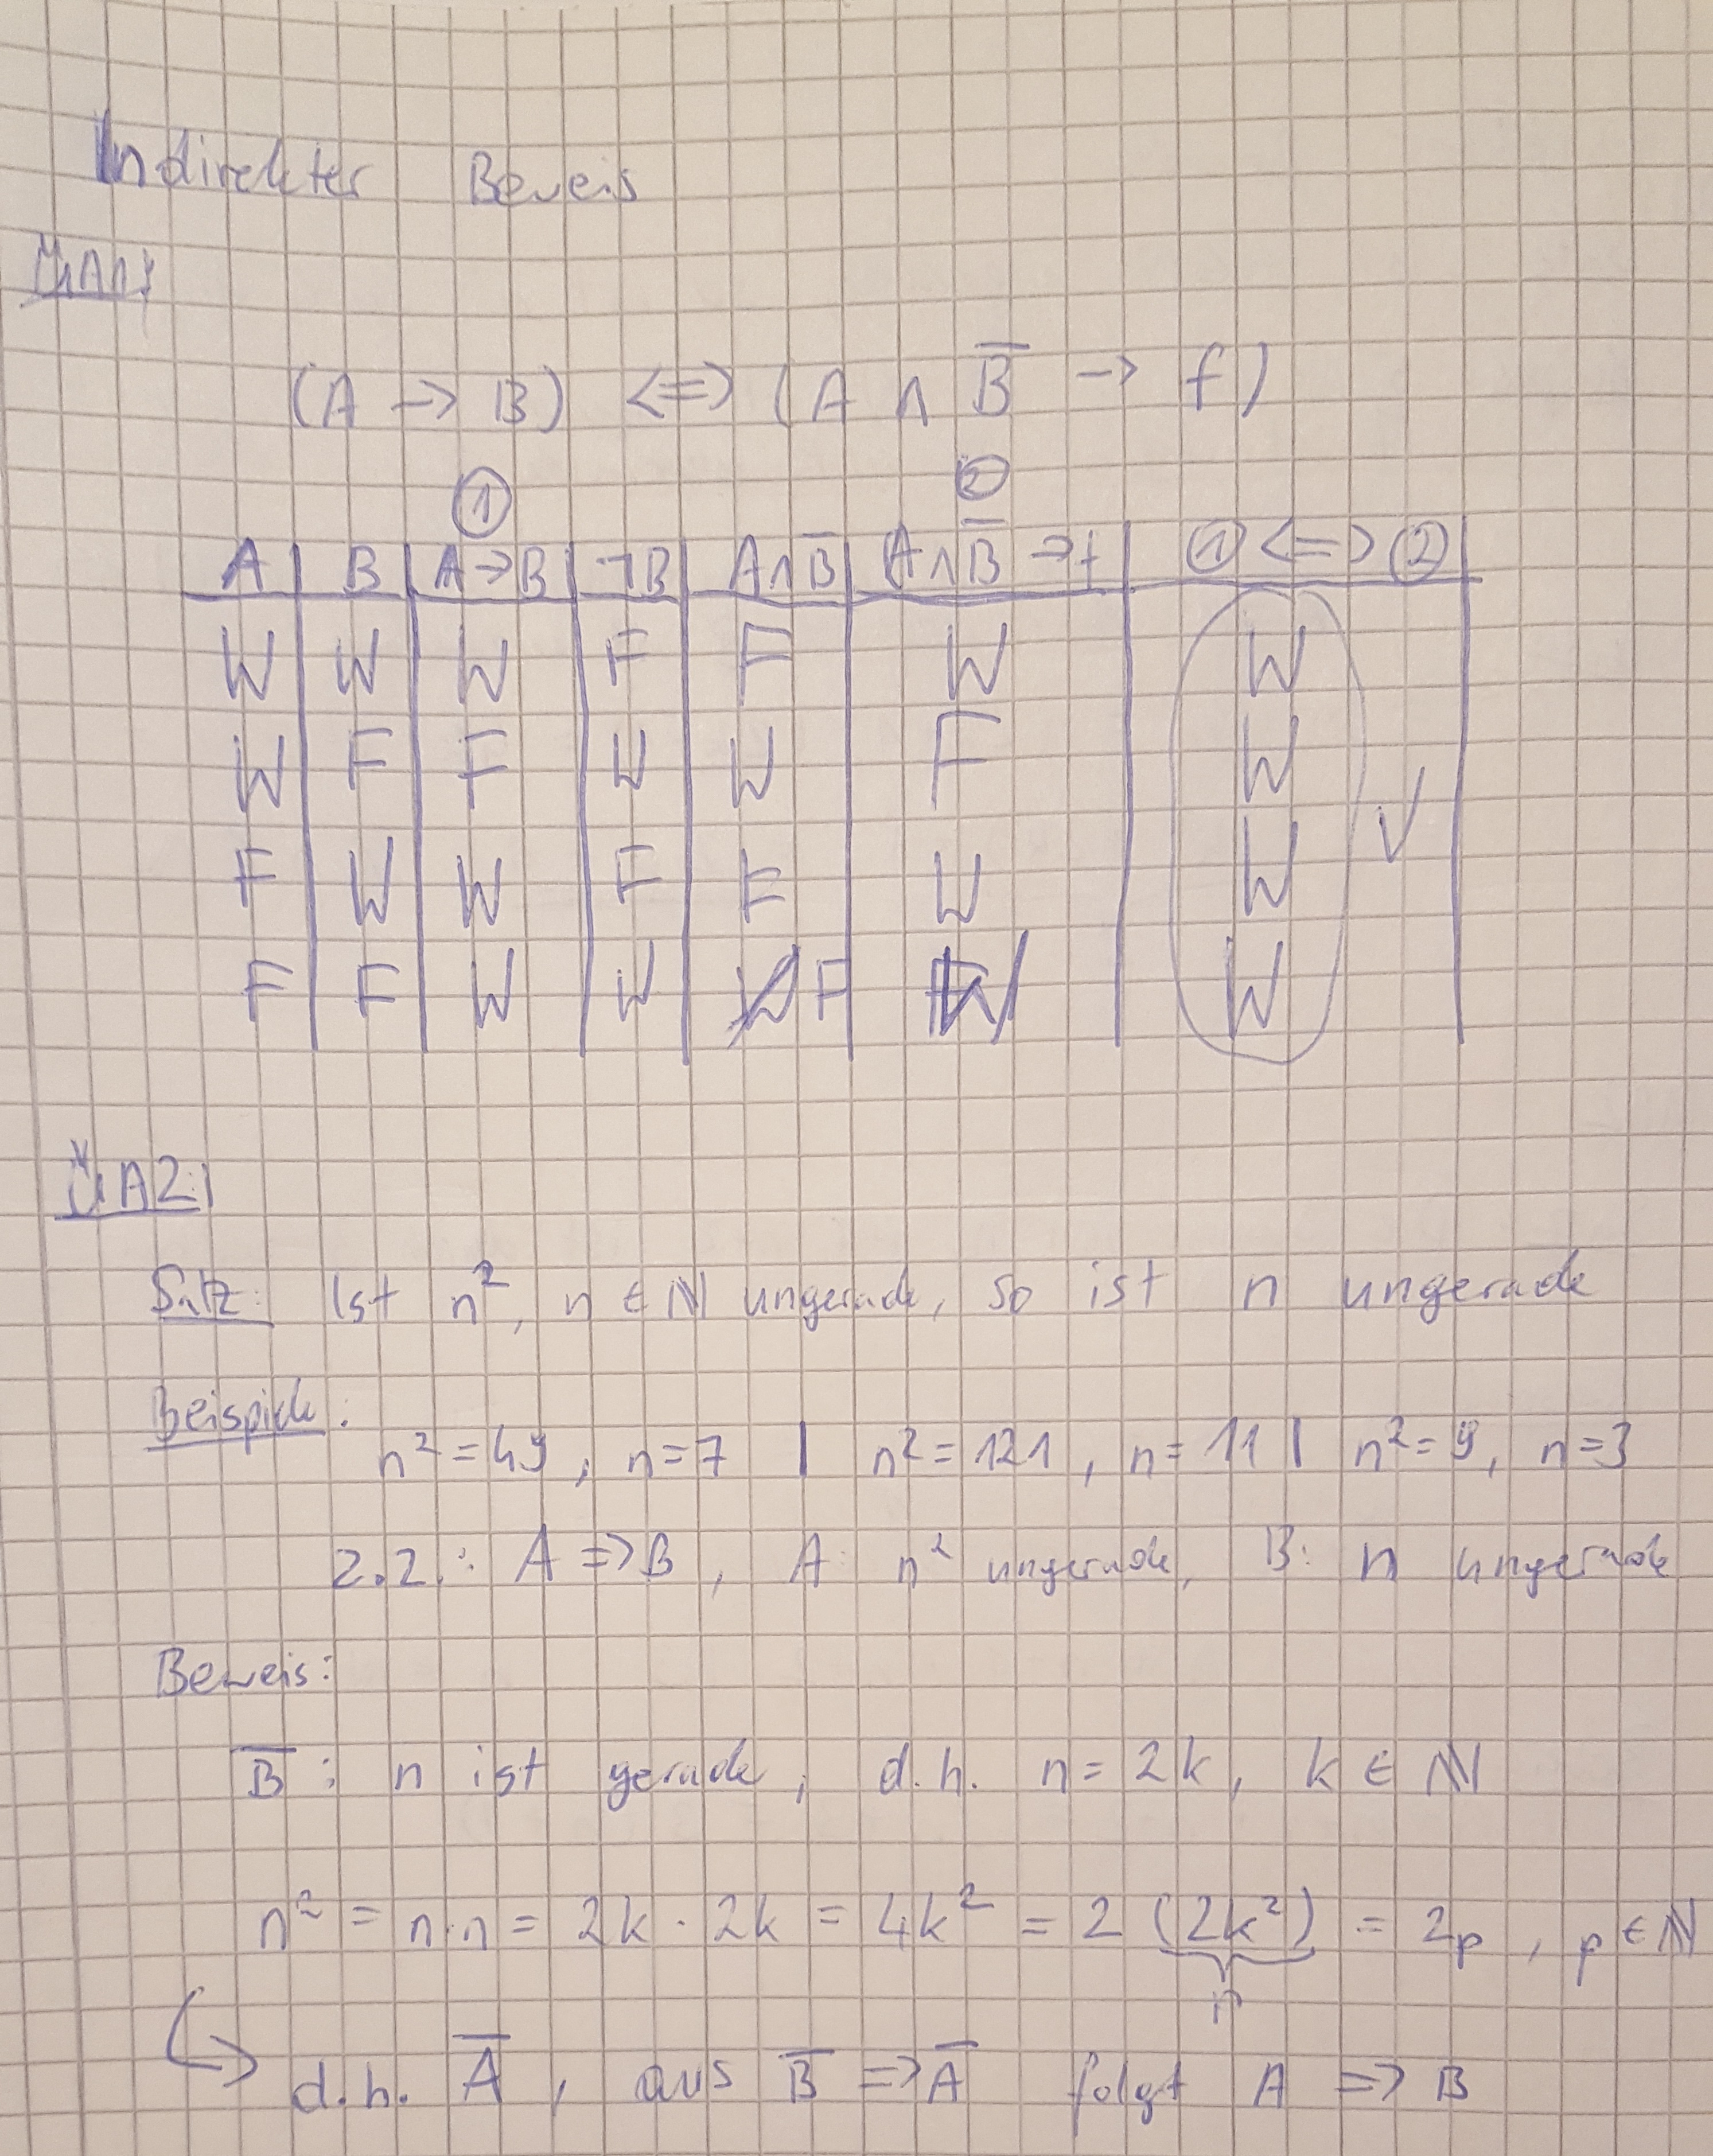 Indirekter Beweis
ÜA1:
(A -> B) <=> (A ∧ B̅ -> f)
① ②
A | B | A->B | ¬B | A∧B̅ | (A∧B̅ ->f | ① <=> ② |
W | W | W | F | F | W | W
W | F | F | W | W | F | W
F | W | W | F | F | W | W ✓
F | F | W | W | F | W | W
ÜA2:
Satz: Ist n², n ∈ ℕ ungerade, so ist n ungerade
Beispiele:
n² = 49, n = 7 | n² = 121, n = 11 | n² = 9, n = 3
2.2.: A => B, A: n² ungerade, B: n ungerade
Beweis:
B̅: n ist gerade, d.h. n = 2k, k ∈ ℕ
n² = n·n = 2k · 2k = 4k² = 2 (2k²) = 2p, p ∈ ℕ
p
d.h. A̅, aus B̅ => A̅ folgt A => B